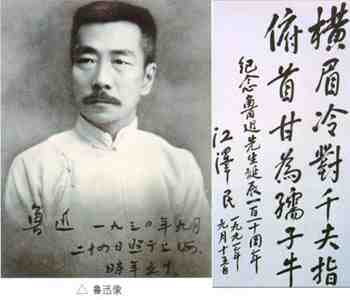 魯迅 一九三〇年九月
二十四日照于上海
時年五十
△ 鲁迅像
橫眉冷對千夫指
俯首甘為孺子牛
紀念魯迅先生誕辰一百十周年
江澤民
一九九一年
九月十五日